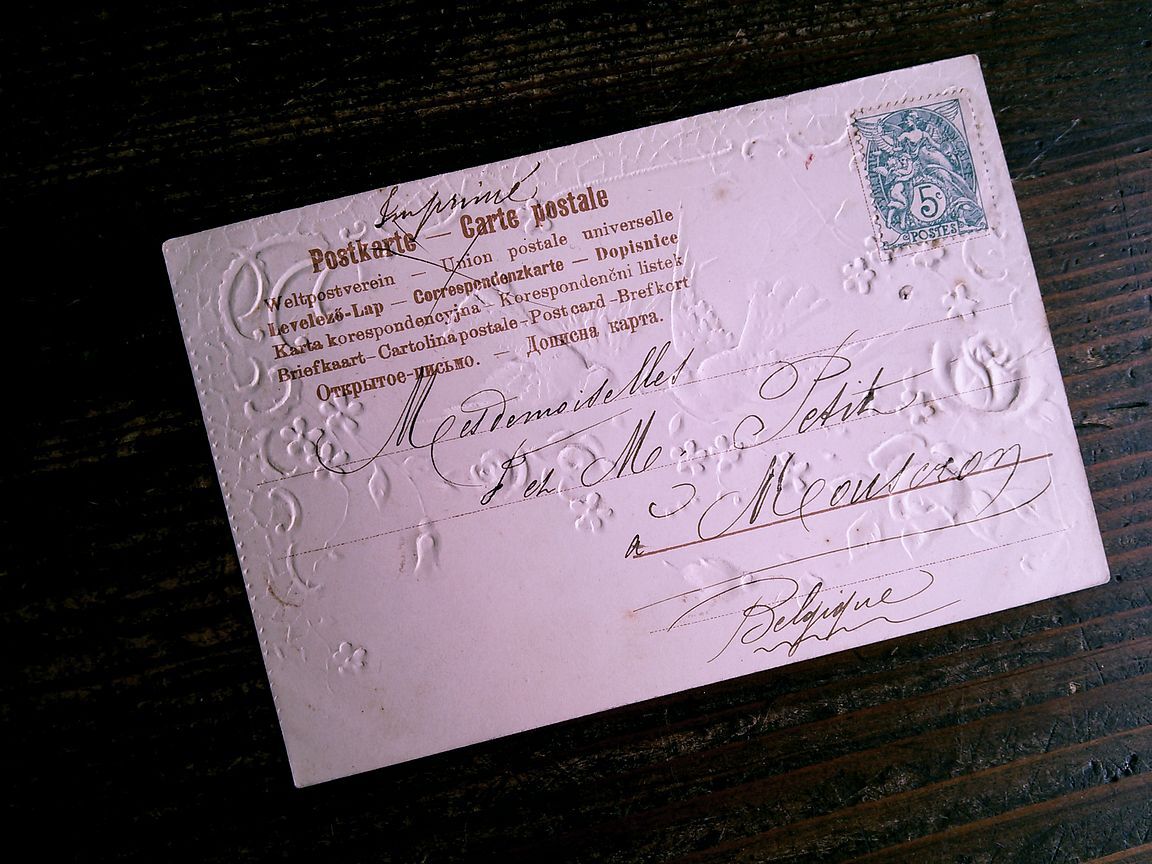 Imprimé
Postkarte — Carte postale
Weltpostverein — Union postale universelle
Levelező-Lap — Correspondenzkarte — Dopisnice
Karta korespondencyjna - Korespondenční listek
Briefkaart - Cartolina postale - Postcard - Brefkort
Открытое-письмо. — Дописна карта.
5c
POSTES
Mesdemoiselles
et M. Petit
à Mouscron
Belgique